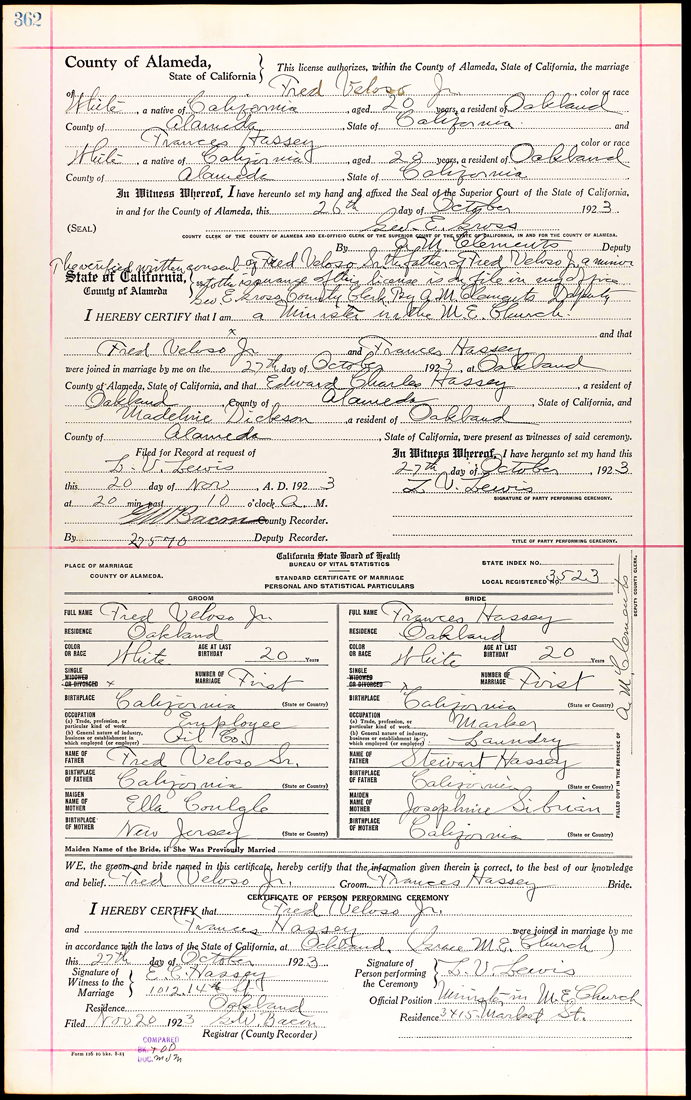 362
County of Alameda, State of California } This license authorizes, within the County of Alameda, State of California, the marriage
of Fred Veloso Jr. color or race
White, a native of California, aged 20 years, a resident of Oakland
County of Alameda, State of California and
Frances Hassey color or race
White, a native of California, aged 20 years, a resident of Oakland
County of Alameda, State of California
In Witness Whereof, I have hereunto set my hand and affixed the Seal of the Superior Court of the State of California,
in and for the County of Alameda, this 26th day of October 1923.
(SEAL) Geo. E. Gross
COUNTY CLERK OF THE COUNTY OF ALAMEDA AND EX-OFFICIO CLERK OF THE SUPERIOR COURT OF THE STATE OF CALIFORNIA, IN AND FOR THE COUNTY OF ALAMEDA.
By A. M. Clements Deputy
The verified written consent of Fred Veloso Sr the father of Fred Veloso Jr a minor
to the issuance of this license is on file in my office
Geo E. Gross County Clerk By A. M. Clements Deputy
State of California, County of Alameda
I HEREBY CERTIFY that I am a Minister in the M. E. Church
and that
Fred Veloso Jr and Frances Hassey
were joined in marriage by me on the 27th day of October 1923, at Oakland
County of Alameda, State of California, and that Edward Charles Hassey, a resident of
Oakland, County of Alameda, State of California, and
Madeline Dickson, a resident of Oakland
County of Alameda, State of California, were present as witnesses of said ceremony.
Filed for Record at request of
L. V. Lewis
this 20 day of Nov, A. D. 1923
at 20 min. past 10 o'clock A. M.
G W Bacon County Recorder.
By 27570 Deputy Recorder.
In Witness Whereof, I have hereunto set my hand this
27th day of October, 1923
L. V. Lewis
SIGNATURE OF PARTY PERFORMING CEREMONY.
TITLE OF PARTY PERFORMING CEREMONY.
PLACE OF MARRIAGE
COUNTY OF ALAMEDA.
California State Board of Health
BUREAU OF VITAL STATISTICS
STANDARD CERTIFICATE OF MARRIAGE
PERSONAL AND STATISTICAL PARTICULARS
STATE INDEX NO.
LOCAL REGISTERED NO. 3523
GROOM
FULL NAME Fred Veloso Jr.
RESIDENCE Oakland
COLOR OR RACE White AGE AT LAST BIRTHDAY 20 Years
SINGLE WIDOWED OR DIVORCED x NUMBER OF MARRIAGE First
BIRTHPLACE California (State or Country)
OCCUPATION
(a) Trade, profession, or particular kind of work Employee
(b) General nature of industry, business or establishment in which employed (or employer) Oil Co.
NAME OF FATHER Fred Veloso Sr.
BIRTHPLACE OF FATHER California (State or Country)
MAIDEN NAME OF MOTHER Ella
BIRTHPLACE OF MOTHER New Jersey (State or Country)
BRIDE
FULL NAME Frances Hassey
RESIDENCE Oakland
COLOR OR RACE White AGE AT LAST BIRTHDAY 20 Years
SINGLE WIDOWED OR DIVORCED x NUMBER OF MARRIAGE First
BIRTHPLACE California (State or Country)
OCCUPATION
(a) Trade, profession, or particular kind of work Marker
(b) General nature of industry, business or establishment in which employed (or employer) Laundry
NAME OF FATHER Stewart Hassey
BIRTHPLACE OF FATHER California (State or Country)
MAIDEN NAME OF MOTHER Josephine Sibrian
BIRTHPLACE OF MOTHER California (State or Country)
FILLED OUT IN THE PRESENCE OF A. M. Clements DEPUTY COUNTY CLERK.
Maiden Name of the Bride, if She Was Previously Married
WE, the groom and bride named in this certificate, hereby certify that the information given therein is correct, to the best of our knowledge
and belief. Fred Veloso Jr. Groom Frances Hassey Bride.
CERTIFICATE OF PERSON PERFORMING CEREMONY
I HEREBY CERTIFY that Fred Veloso Jr.
and Frances Hassey were joined in marriage by me
in accordance with the laws of the State of California, at Oakland, (Grace M. E. Church)
this 27th day of October 1923.
Signature of Witness to the Marriage } E. C. Hassey
1012 14th St
Residence Oakland
Filed Nov 20 1923 G W Bacon
Registrar (County Recorder)
Signature of Person performing the Ceremony { L. V. Lewis
Official Position Minister in M. E. Church
Residence 3415 Market St.
COMPARED
BK.
DOC.
Form 126 10 bks. 8-23